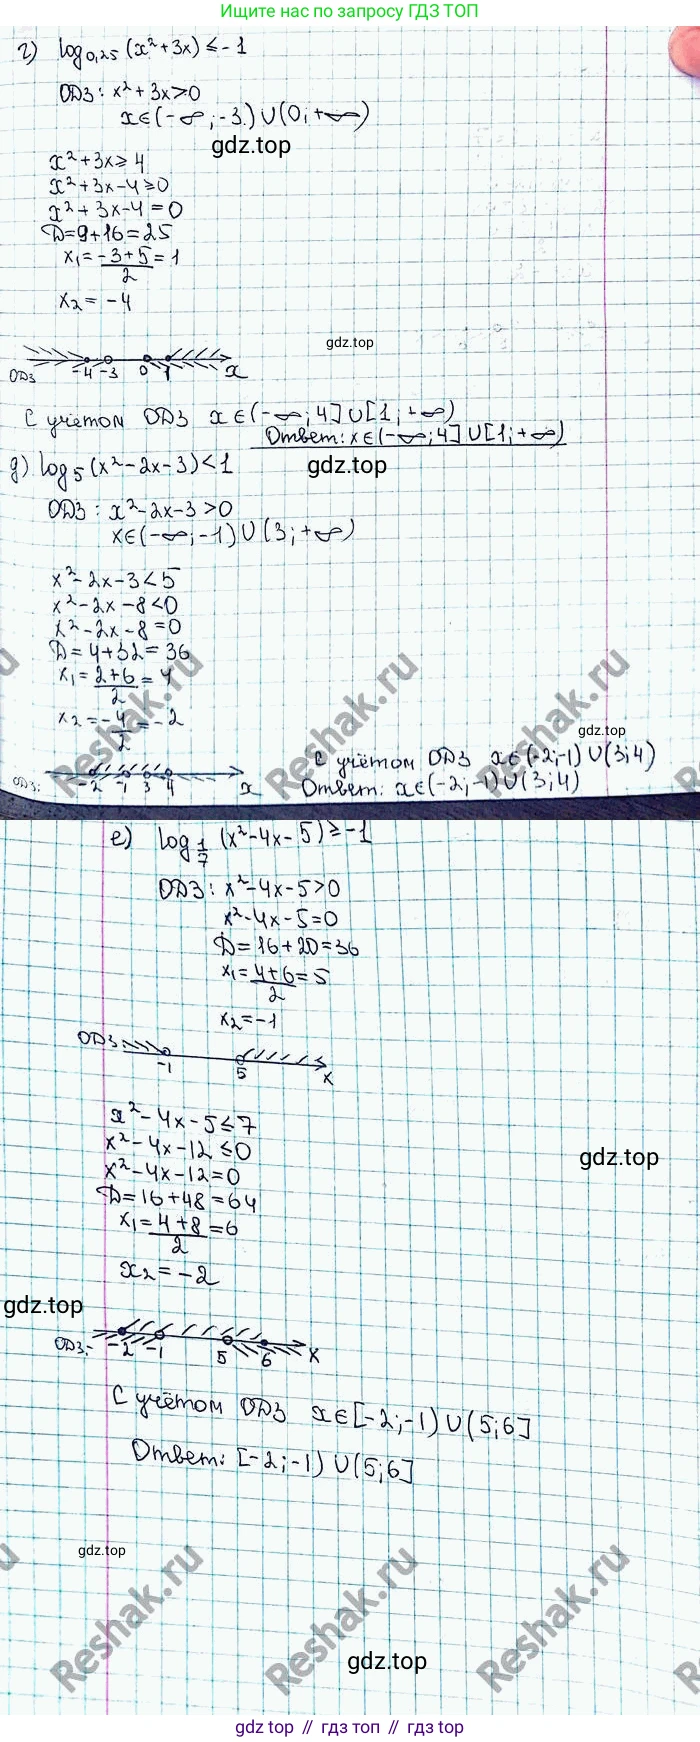 Ищите нас по запросу ГДЗ ТОП
г) log₀,₂₅ (x²+3x) ≤ -1
ОДЗ: x²+3x>0
x∈(-∞;-3)∪(0;+∞)
gdz.top
x²+3x≥4
x²+3x-4≥0
x²+3x-4=0
D=9+16=25
x₁=(-3+5)/2=1
x₂=-4
gdz.top
ОДЗ -4 -3 0 1 x
С учетом ОДЗ x∈(-∞;4]∪[1;+∞)
Ответ: x∈(-∞;4]∪[1;+∞)
д) log₅(x²-2x-3)<1
gdz.top
ОДЗ: x²-2x-3>0
x∈(-∞;-1)∪(3;+∞)
x²-2x-3<5
x²-2x-8<0
x²-2x-8=0
D=4+32=36
x₁=(2+6)/2=4
x₂=-4/2=-2
gdz.top
ОДЗ: -2 -1 3 4 x
С учётом ОДЗ x∈(-2;-1)∪(3;4)
Ответ: x∈(-2;-1)∪(3;4)
Reshak.ru
Reshak.ru
Reshak.ru
е) log₁/₇ (x²-4x-5)≥-1
ОДЗ: x²-4x-5>0
x²-4x-5=0
D=16+20=36
x₁=(4+6)/2=5
x₂=-1
ОДЗ -1 5 x
x²-4x-5≤7
x²-4x-12≤0
x²-4x-12=0
gdz.top
D=16+48=64
x₁=(4+8)/2=6
x₂=-2
gdz.top
ОДЗ: -2 -1 5 6 x
С учётом ОДЗ x∈[-2;-1)∪(5;6]
Ответ: [-2;-1)∪(5;6]
gdz.top
Reshak.ru
Reshak.ru
Reshak.ru
gdz.top
gdz top // гдз топ // gdz.top